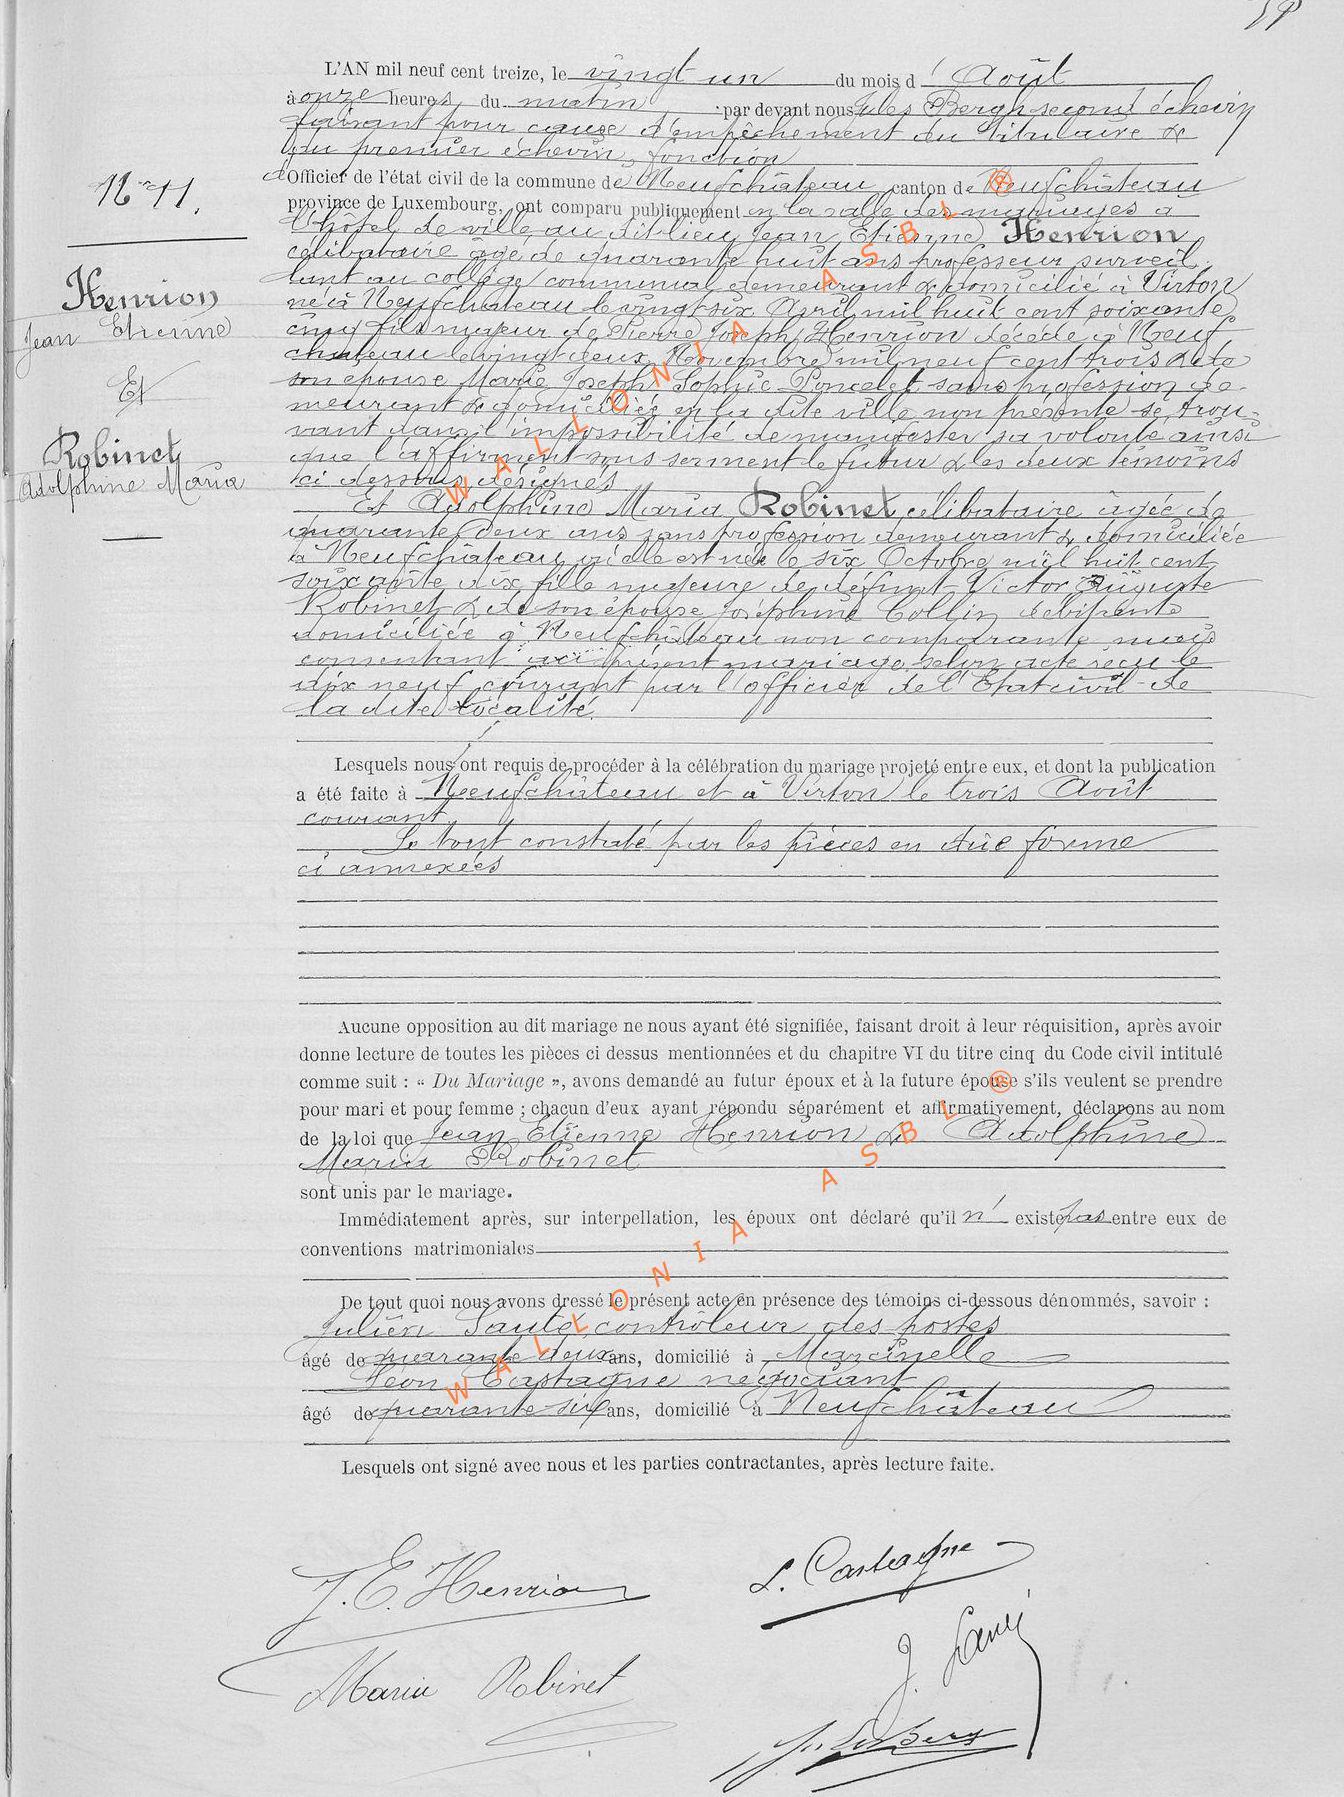 L'AN mil neuf cent treize, le vingt un du mois d' Août
à onze heures du matin par devant nous Jules Bergh second échevin
faisant pour cause d'empêchement du titulaire &
du premier échevin, fonction
d'Officier de l'état civil de la commune de Neufchâteau canton de Neufchâteau
province de Luxembourg, ont comparu publiquement en la salle des mariages à
l'hôtel de ville au dit lieu Jean Etienne Henrion
célibataire âgé de quarante huit ans professeur surveil
lant au collège communal demeurant & domicilié à Virton
né à Neufchâteau le vingt six Avril mil huit cent soixante
cinq fils majeur de Pierre Joseph Henrion décédé à Neuf
château le vingt deux Novembre mil neuf cent trois & de
son épouse Marie Joseph Sophie Poncelet sans profession de-
meurant & domiciliée en la dite ville non présente se trou-
vant dans l'impossibilité de manifester sa volonté ainsi
que l'affirment sous serment le futur & les deux témoins
ci dessous désignés
Et Adolphine Maria Robinet célibataire âgée de
quarante deux ans sans profession demeurant & domiciliée
à Neufchâteau où elle est née le six Octobre mil huit cent
soixante dix fille majeure de défunt Victor Auguste
Robinet & de son épouse Joséphine Collin débitante
domiciliée à Neufchâteau non comparante mais
consentant au présent mariage selon acte reçu le
dix neuf courant par l'officier de l'Etat civil de
la dite localité.
N° 41.
Henrion
Jean Etienne
Et
Robinet
Adolphine Maria
Lesquels nous ont requis de procéder à la célébration du mariage projeté entre eux, et dont la publication
a été faite à Neufchâteau et à Virton le trois Août
courant.
Le tout constaté par les pièces en dûe forme
ci annexées
Aucune opposition au dit mariage ne nous ayant été signifiée, faisant droit à leur réquisition, après avoir
donne lecture de toutes les pièces ci dessus mentionnées et du chapitre VI du titre cinq du Code civil intitulé
comme suit : « Du Mariage », avons demandé au futur époux et à la future épouse s'ils veulent se prendre
pour mari et pour femme ; chacun d'eux ayant répondu séparément et affirmativement, déclarons au nom
de la loi que Jean Etienne Henrion & Adolphine
Maria Robinet
sont unis par le mariage.
Immédiatement après, sur interpellation, les époux ont déclaré qu'il n' existe pas entre eux de
conventions matrimoniales
De tout quoi nous avons dressé le présent acte en présence des témoins ci-dessous dénommés, savoir :
Julien contrôleur des postes
âgé de quarante deux ans, domicilié à Marcinelle
Léon Castagne négociant
âgé de quarante six ans, domicilié à Neufchâteau
Lesquels ont signé avec nous et les parties contractantes, après lecture faite.
J. E. Henrion
L. Castagne
J.
Maria Robinet
WALLONIA ASBL ®
WALLONIA ASBL ®